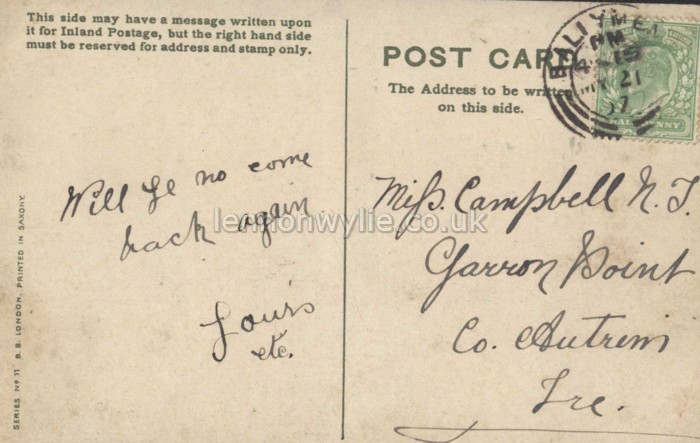 This side may have a message written upon
it for Inland Postage, but the right hand side
must be reserved for address and stamp only.
POST CARD
The Address to be written
on this side.
BALLYMENA
PM
MY 21
07
HALFPENNY
Will ye no come
back again
Yours
etc.
lennonwylie.co.uk
Miss. Campbell N.T.
Garron Point
Co. Antrim
Ire.
SERIES Nº 11 B.B. LONDON. PRINTED IN SAXONY.